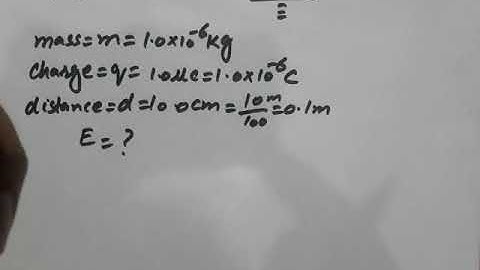 mass=m=1.0×10⁻⁶kg
charge=q=1.0μc=1.0×10⁻⁶C
distance=d=10.0cm=10m/100=0.1m
E=?